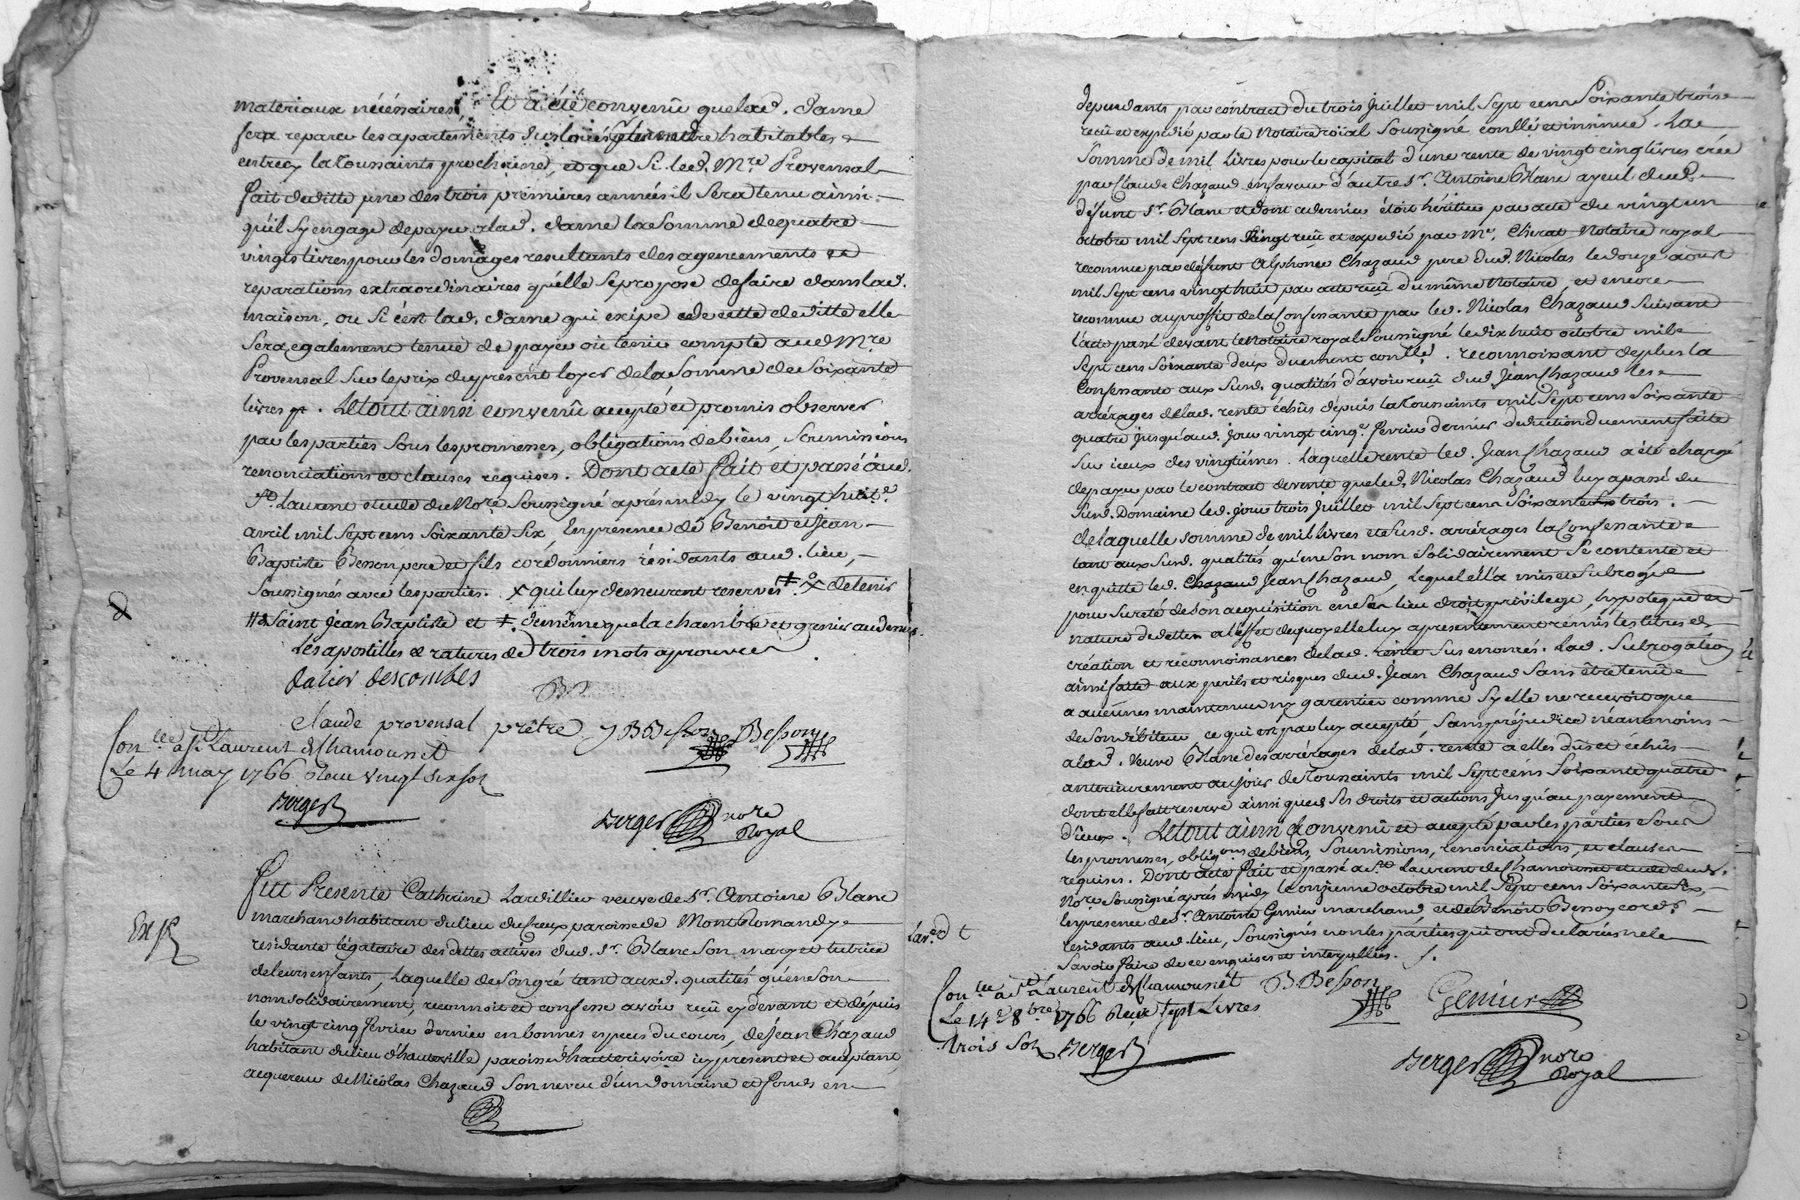 materiaux nécéssaires. Et a été convenû que lad. dame
fera reparer les apartements dus loués et les rendre habitables
entrecy la toussaints prochaine, et que si led. Mre. Provensal
fait deditte une des trois premieres années il sera tenu ainsi
qu'il s'y engage de payer a lad. dame la somme de quatre
vingts livres pour les domages resultants des agencements et
reparations extraordinaires qu'elle se propose de faire dans lad.
maison, ou si c'est lad. dame qui exige cette deditte elle
sera egalement tenuë de payer ou tenir compte aud Mre.
Provensal sur le prix du present loyer de la somme de soixante
livres. Le tout ainsi convenû accepté et promis observer
par les parties sous les promesses, obligations de biens, soumissions
renonciations et clauses requises. Dont acte fait et passé aud.
St. Laurent etude du Nore. soussigné aprés midy le vingt huite.
avril mil sept cens soixante six, En presence de Benoit et Jean
Baptiste Besson pere et fils cordonniers résidants aud. lieu,
soussignés avec les parties. x qui luy demeurent reservés x de tenir
saint Jean Baptiste et de même que la chambre et grenier au dessus.
Les apostilles et ratures de trois mots aprouvées
dalier descombes
claude provensal prêtre J B Besson Besson
Conlee. a st. Laurent de Chamousset
Le 4 may 1766 Recu vingt six sol
Berger
Berger nore
Royal
Exp
Fut Presente Catherine Lardillier veuve de sr. Antoine Blanc
marchand habitant du lieu du feux paroisse de Montromand y
residante légataire des dettes actives dud. sr. Blanc son mary et tutrice
de leurs enfants, Laquelle de son gré tant aux d. qualités qu'en son
nom solidairement, reconnoit et confesse avoir reçû cy devant et dépuis
le vingt cinq fevrier dernier en bonnes especes du cours, de Jean Chazaud
habitant du lieu d'hauteville paroisse d'hauterivoire icy present et acceptant,
acquereur de Nicolas Chazaud son neveu d'un domaine et fonds en
dependants par contract du trois juillet mil sept cens soixante trois
recû et expedié par le Notaire roial soussigné conllé et insinué. La
somme de mil livres pour le capital d'une rente de vingt cinq livres créé
par Claude Chazaud en faveur d'autre sr. Antoine Blanc ayeul dud.
défunt sr. Blanc et dont ce dernier étoit héritier par acte du vingt un
octobre mil sept cens vingt recû et expedié par Me. Chirat Notaire royal
reconnue par défunt Alphonse Chazaud pere dud. Nicolas le douze aoust
mil sept cens vingt huit par acte recû du même Notaire, et encore
reconnue au proffit de la Confessante par led. Nicolas Chazaud suivant
l'acte passé devant le Notaire royal soussigné le dix huit octobre mil
sept cens soixante deux duement conllé. reconnoissant deplus la
Confessante aux susd. qualités d'avoir recû dud. Jean Chazaud les
arrérages de lad. rente échûs dépuis la toussaints mil sept cens soixante
quatre jusqu'aud. jour vingt cinqe. fevrier dernier deduction duement faite
sur iceux des vingtiémes. Laquelle rente led. Jean Chazaud a été chargé
de payer par le contract de vente que led. Nicolas Chazaud luy a passé du
susd. Domaine led. jour trois juillet mil sept cens soixante trois.
de laquelle somme de mil livres et susd. arrérages la Confessante
tant aux susd. qualités qu'en son nom solidairement se contente et
en quitte led. Jean Chazaud, Lequel ella mis et subrogé
pour sureté de son acquisition en ses lieu droit privilege, hypoteque et
nature de dette a l'effet de quoy elle luy a presentement remis les titres de
création et reconnoissances de lad. rente sus enoncés. Lad. subrogation
ainsi faitte aux perils et risques dud. Jean Chazaud sans être tenuë
a aucunes maintenue ny garentie comme sy elle ne recevoit que
de son débiteur ce qui est par luy accepté sans préjudice néanmoins
a lad. veuve Blanc des arrérages de lad. rente a elle dûs et échûs
anterieurement au jour de toussaints mil sept cens soixante quatre
dont elle fait reserve ainsi que de ses droits et actions jusqu'au payement
d'iceux. Le tout ainsi convenû et accepté par les parties sous
les promesses, obligons. de biens, soumissions, renonciations, et clauses
requises. Dont acte fait et passé a st. Laurent de Chamousset etude dud.
Nore. soussigné aprés midy le onzieme octobre mil sept cens soixante six,
En presence de sr. Antoine Genier marchand, et de Benoit Besson cordr.
residants aud. lieu, soussignés non les parties qui ont declarés ne le
savoir faire de ce enquises et interpellées.
Conlee a st. Laurent de Chamousset B Besson Genier
Le 14e 8bre 1766 Reçu sept Livres
trois sol Berger
Berger nore
Royal